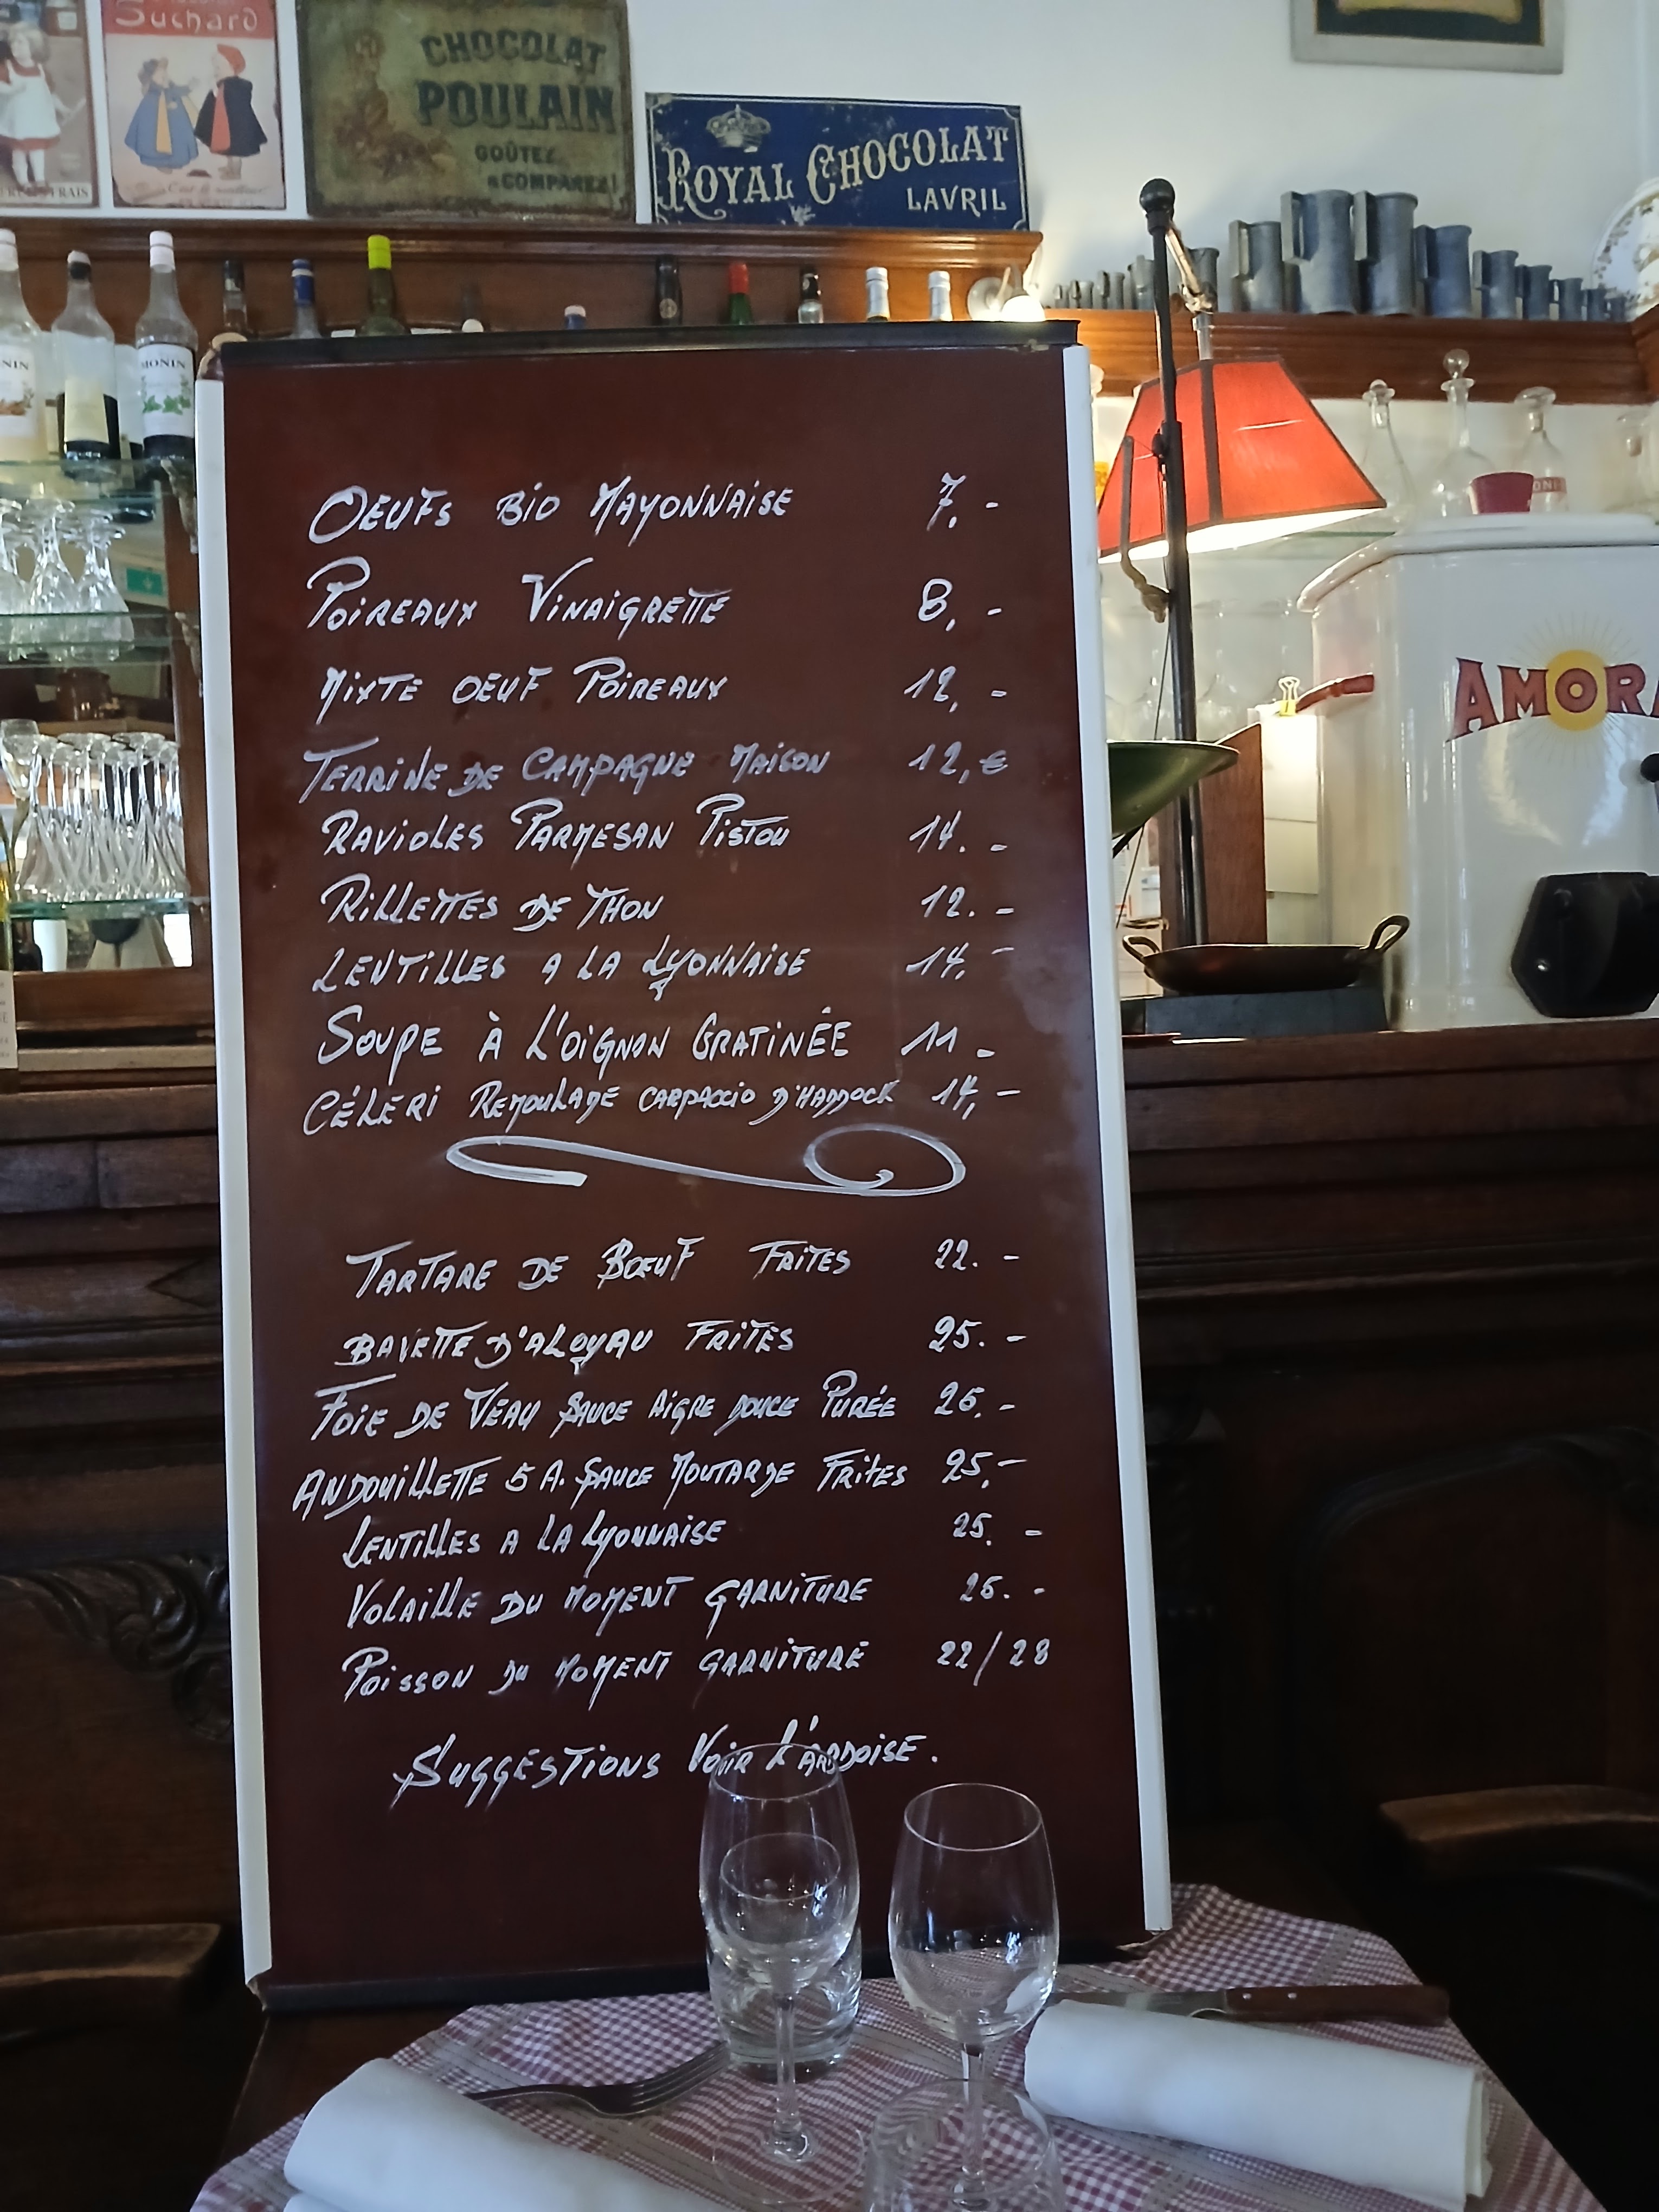 Suchard
C'est le meilleur
CHOCOLAT
POULAIN
GOÛTEZ
& COMPAREZ!
ROYAL CHOCOLAT
LAVRIL
MONIN
MONIN
AMORA
OEUFS BIO MAYONNAISE 7.-
POIREAUX VINAIGRETTE 8,-
MIXTE OEUF POIREAUX 12,-
TERRINE DE CAMPAGNE MAISON 12,€
RAVIOLES PARMESAN PISTOU 14.-
RILLETTES DE THON 12.-
LENTILLES A LA LYONNAISE 14.-
SOUPE À L'OIGNON GRATINÉE 11-
CÉLERI REMOULADE CARPACCIO D'HADDOCK 14,-
TARTARE DE BŒUF FRITES 22.-
BAVETTE D'ALOYAU FRITES 25.-
FOIE DE VEAU SAUCE AIGRE DOUCE PURÉE 26.-
ANDOUILLETTE 5 A. SAUCE MOUTARDE FRITES 25.-
LENTILLES A LA LYONNAISE 25.-
VOLAILLE DU MOMENT GARNITURE 26.-
POISSON DU MOMENT GARNITURE 22/28
SUGGESTIONS VOIR L'ARDOISE.